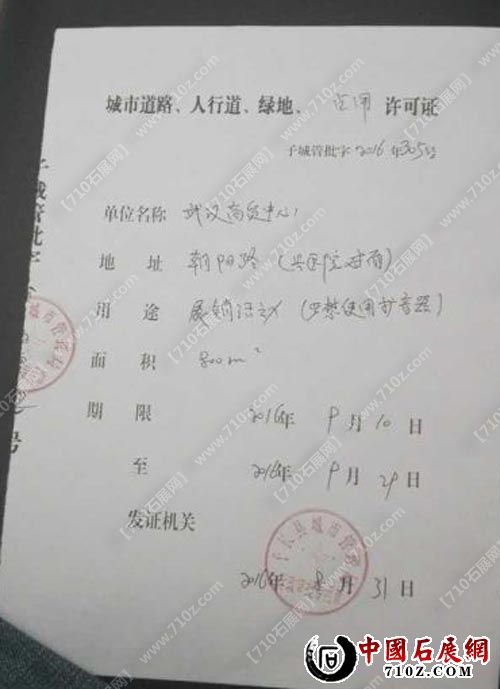 城市道路、人行道、绿地、占用许可证
子城管批字2016年305号
单位名称 武汉商贸中心
地址 朝阳路(县医院对面)
用途 展销活动(严禁使用扩音器)
面积 800m²
期限 2016年9月10日
至 2016年9月29日
发证机关
子长县城市管
2016年8月31日
子城管批字
号
【710石展网】www.710z.com
中國石展網
www.710z.com